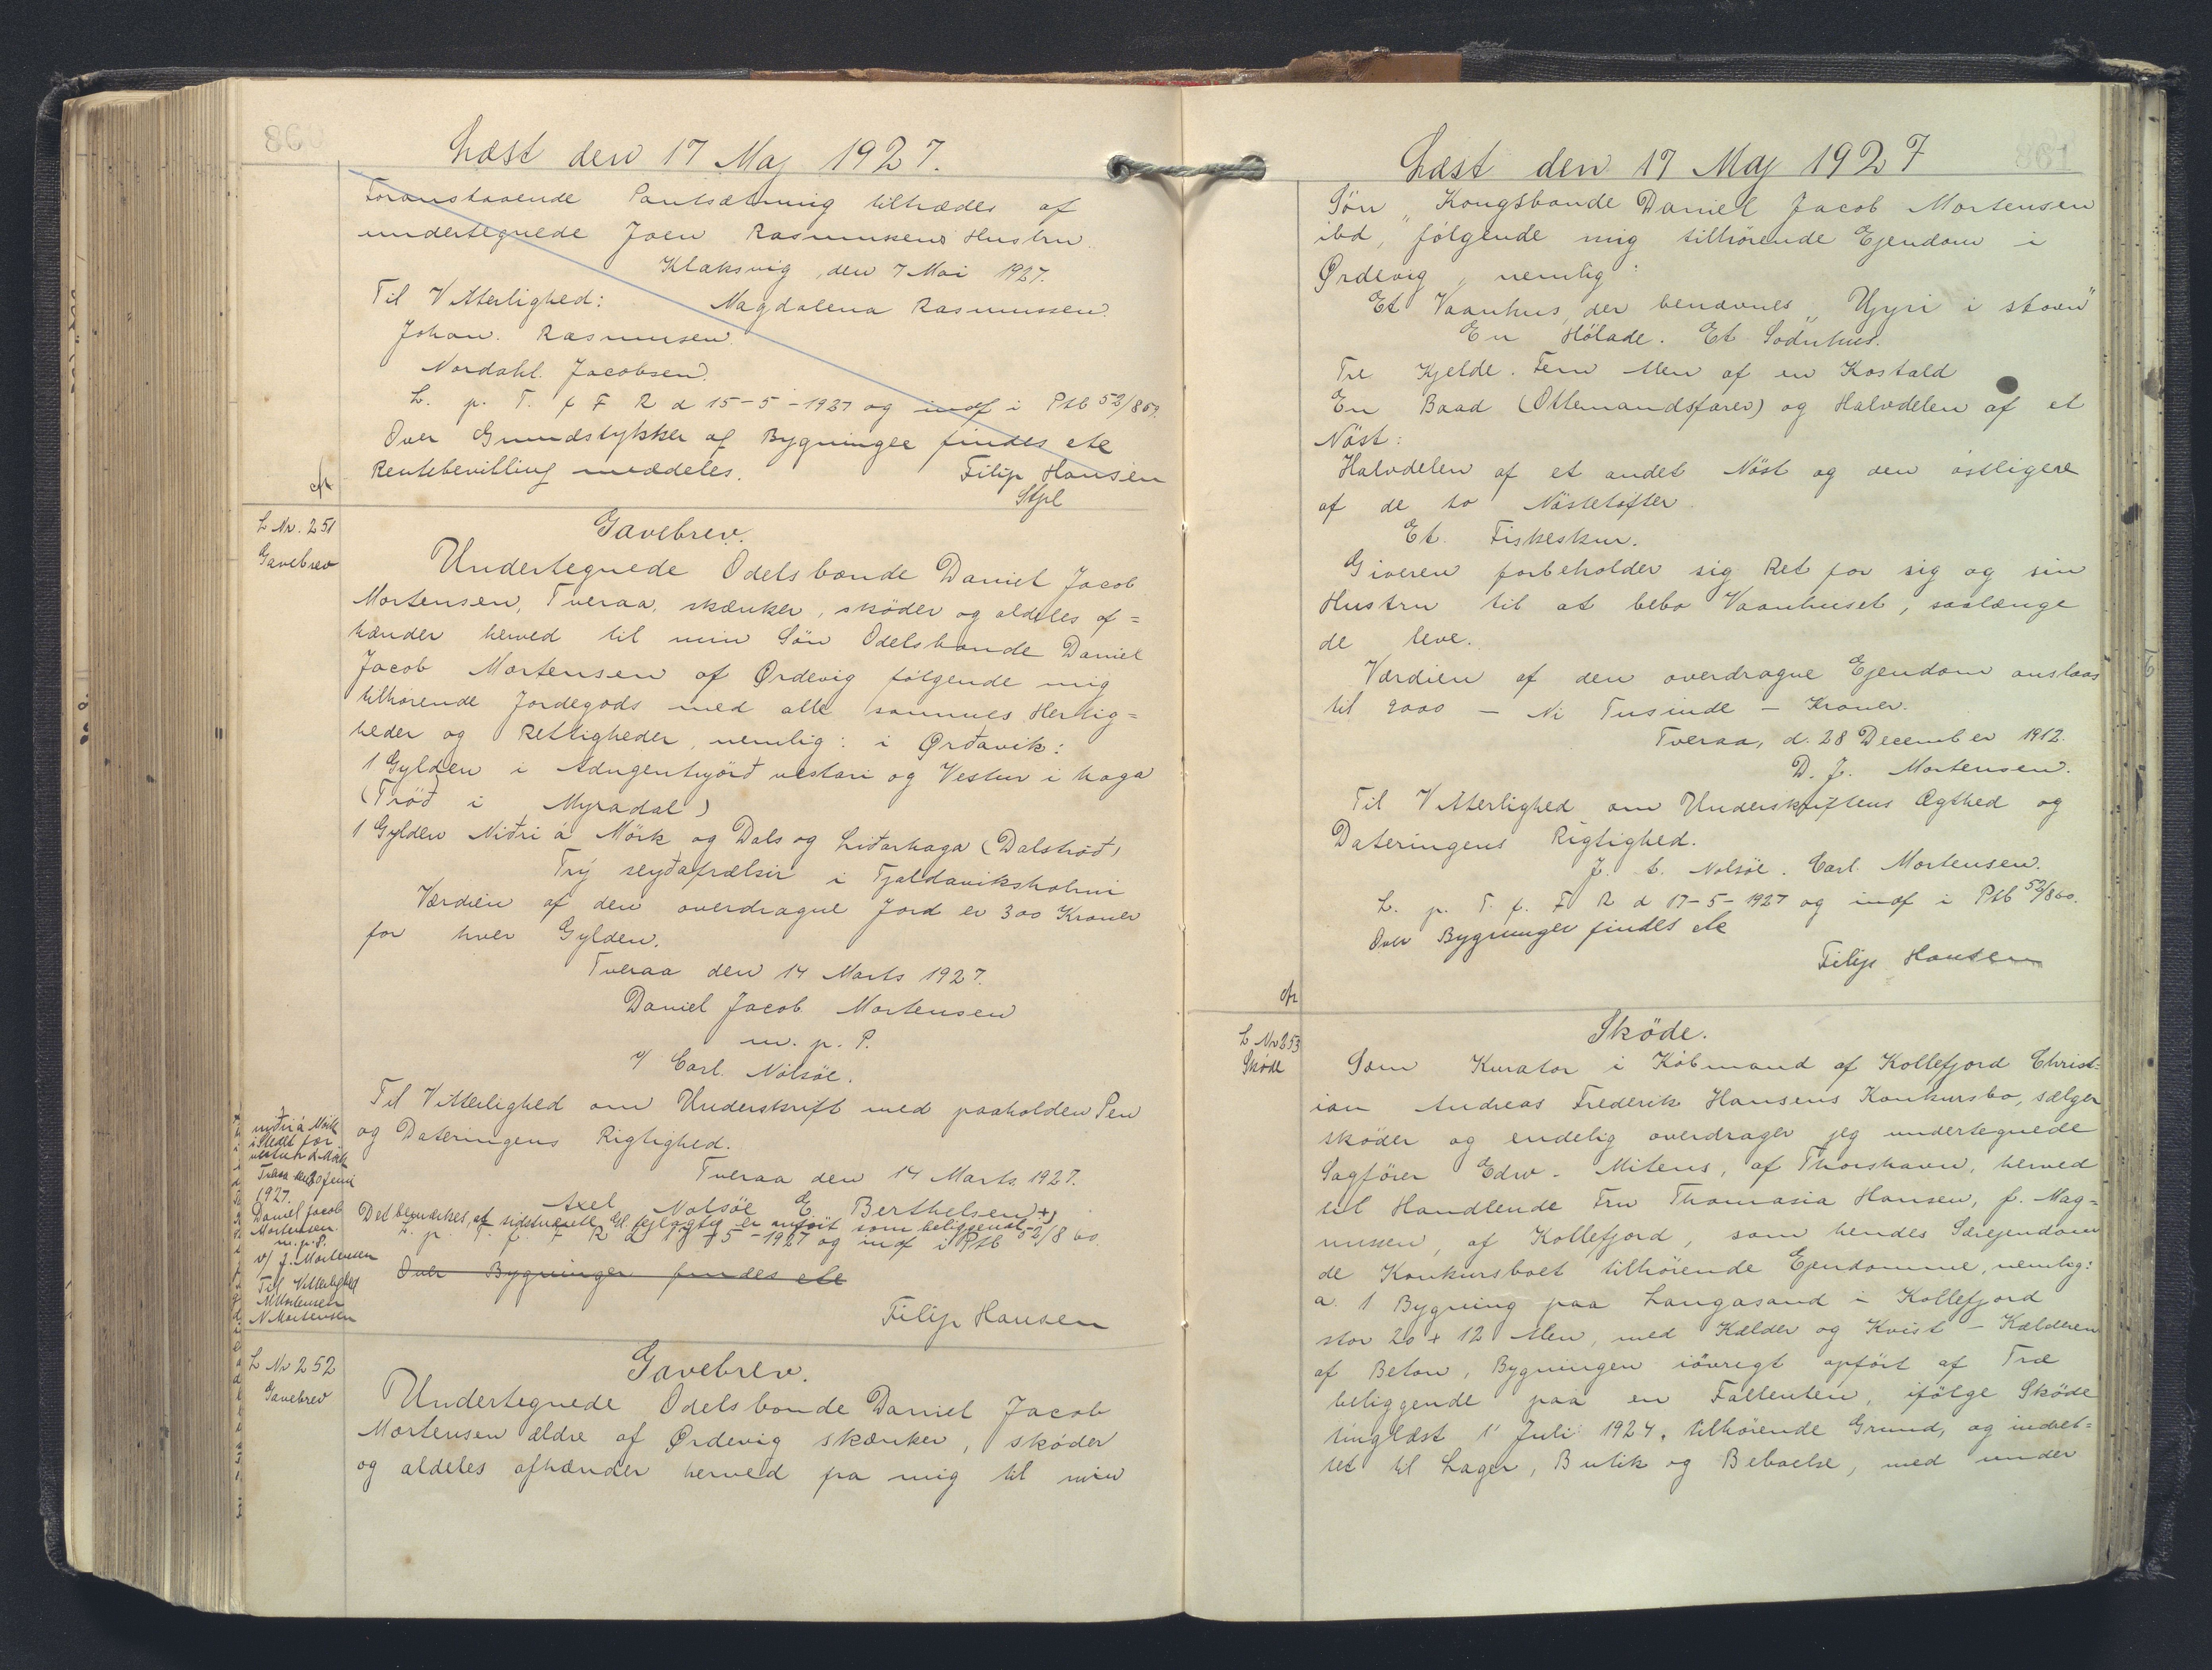 860
Læst den 17 Maj 1927.
Foranstaaende Pantsætning tiltrædes af
undertegnede Joen Rasmussens Hustru.
Klaksvig, den 7 Mai 1927.
Til Vitterlighed: Magdalena Rasmussen.
Johan. Rasmussen.
Nordahl. Jacobsen.
L. p. T. f F R d 15-5-1927 og indf i Ptb 52/859.
Over Grundstykker af Bygninger findes ete
Rentebevilling meddeles. Filip Hansen
Stpl
cfr
L Nr. 251
Gavebrev
Gavebrev.
Undertegnede Odelsbonde Daniel Jacob
Mortensen, Tveraa, skænker, skøder og aldeles af=
hænder herved til min Sön Odelsbonde Daniel
Jacob Mortensen af Ørdevig følgende mig
tilhørende Jordegods med alle sammes Herlig=
heder og Rettigheder, nemlig: i Ørðavik:
1 Gylden i Adngentrjörd vestari og Vestur i haga
(Tröð i Myradal)
1 Gylden Niðri á Mörk og Dals og Liðarhaga (Dalströð)
Trý seyðafrælsir i Tjaldaviksholmi
Værdien af den overdragne Jord er 300 Kroner
for hver Gylden.
Tveraa den 14 Marts 1927.
Daniel Jacob Mortensen
m. p. P.
v/ Carl. Nolsøe.
Til Vitterlighed om Underskrift med paaholden Pen
og Dateringens Rigtighed.
Tveraa den 14 Marts 1927.
Axel Nolsöe E. Berthelsen +)
Det bemærkes, at sidstnævnte Gl. fejlagtig er anfört som beliggende
L. p. T. f. F R d 17-5-1927 og indf i Ptb 52/860.
Over Bygninger findes ete
Filip Hansen
niðri á Mörk
istedet for
vestur á Mörk
Tveraa den 20 Juni
1927.
Daniel Jacob
Mortensen.
m. p. P.
v/ J. Mortensen
Til Vitterlighed
M Mortensen
N Mortensen
L Nr 252
Gavebrev
Gavebrev.
Undertegnede Odelsbonde Daniel Jacob
Mortensen ældre af Ørdevig skænker, skøder
og aldeles afhænder herved fra mig til min
861
Læst den 17 Maj 1927
Sön, Kongsbonde Daniel Jacob Mortensen
ibd, følgende mig tilhørende Ejendom i
Ørdevig, nemlig:
Et Vaanhus, der benævnes "Uyri i stovu"
En Hölade. Et Sodnhus.
Tre Kjelde. Fem Alen af en Kostald
En Baad (Ottemandsfarer) og Halvdelen af et
Nöst:
Halvdelen af et andet Nöst og den östligere
af de to Nöstetofter
Et Fiskeskur.
Giveren forbeholder sig Ret for sig og sin
Hustru til at bebo Vaanhuset, saalænge
de leve.
Værdien af den overdragne Ejendom anslaas
til 9000 - Ni Tusinde - Kroner.
Tveraa, d. 28 December 1912.
D. J. Mortensen.
Til Vitterlighed om Underskriftens Ægthed og
Dateringens Rigtighed.
J. C. Nolsöe. Carl. Mortensen.
L. p. T. f. F R d 17-5-1927 og indf i Ptb 52/860.
Over Bygninger findes ete
Filip Hansen
cfr
L Nr 253
Skøde
Sköde.
Som Kurator i Købmand af Kollefjord Christ=
ian Andreas Frederik Hansens Konkursbo, sælger
skøder og endelig overdrager jeg undertegnede
Sagfører Edw. Mitens, af Thorshavn, herved
til Handlende Fru Thomasia Hansen, f. Mag=
nussen, af Kollefjord, som hendes Særejendom
de Konkursboet tilhørende Ejendomme, nemlig:
a. 1 Bygning paa Langasand i Kollefjord
stor 20 x 12 Alen, med Kælder og Kvist - Kælderen
af Beton, Bygningen iövrigt opfört af Træ
beliggende paa en Fallenten, ifölge Sköde
tinglæst 1' Juli 1924, tilhørende Grund, og indret=
tet til Lager, Butik og Beboelse, med under